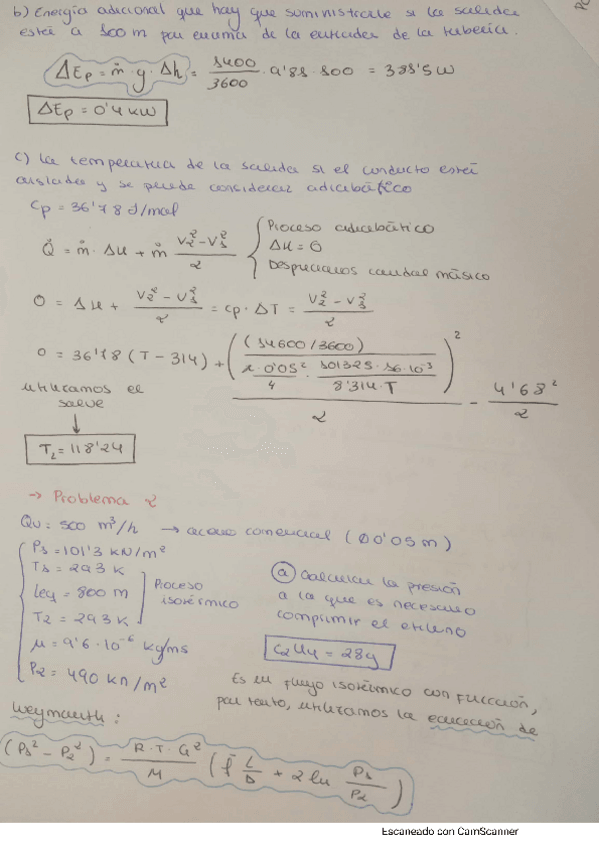 b) Energía adicional que hay que suministrarle si la salida
está a 100 m por encima de la entrada de la tubería.
ΔEp = ṁ · g · Δh = 1400/3600 · 9'81 · 100 = 381'5 W
ΔEp = 0'4 kW
c) La temperatura de la salida si el conducto está
aislado y se puede considerar adiabático
Cp = 36'78 J/mol
Q̇ = ṁ · Δu + ṁ (V₂² - V₁²)/2 { Proceso adiabático
Δu = 0
Despreciamos caudal másico
0 = Δu + (V₂² - V₁²)/2 = cp · ΔT = (V₂² - V₁²)/2
0 = 36'78 (T - 314) + (((14600/3600) / (π·0'05²/4 · 101325·16·10³/8'314·T))²)/2 - 4'68²/2
utilizamos el
solve
↓
T₂ = 118'24
→ Problema 2
Qv: 500 m³/h → acero comercial (Ø0'05 m)
P₁ = 101'3 kN/m²
T₁ = 293 K
Leq = 800 m
T₂ = 293 K
Proceso
isotérmico
μ = 9'6·10⁻⁶ kg/ms
P₂ = 490 kn/m²
a) Calcular la presión
a la que es necesario
comprimir el etileno
C₂H₄ = 28g
Es un flujo isotérmico con fricción,
por tanto, utilizamos la ecuación de
Weymouth:
(P₁² - P₂²) = R·T·G²/M (f L/D + 2 ln P₁/P₂)
Escaneado con CamScanner